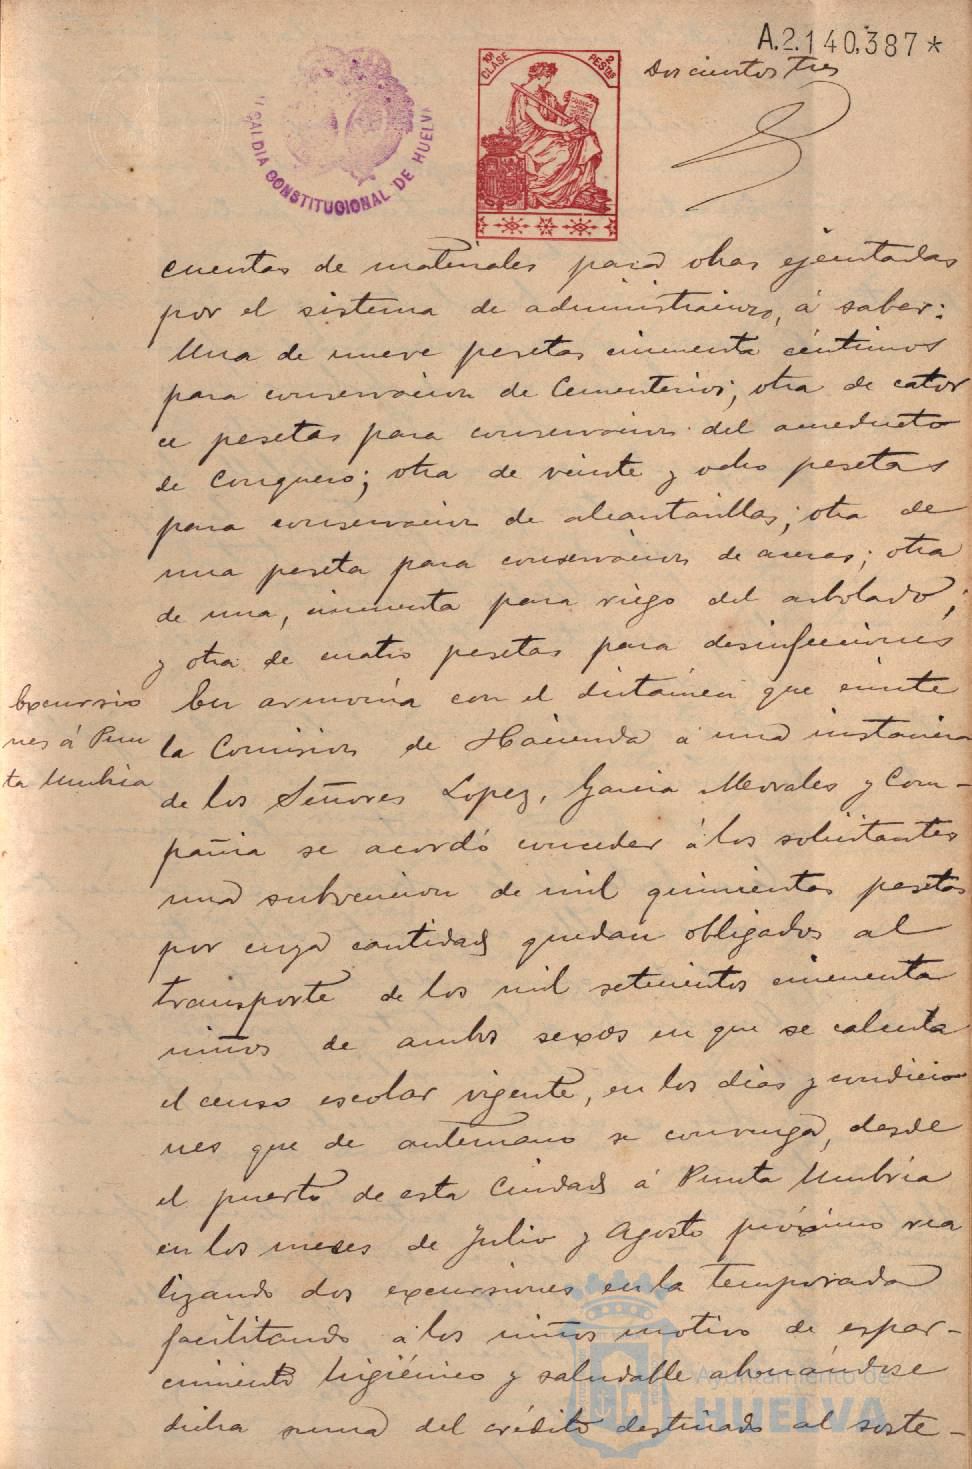 A.2.140,387*
Doscientos tres
ALCALDIA CONSTITUCIONAL DE HUELVA
10ª CLASE
2 PESETAS
cuentas de materiales para obras ejecutadas
por el sistema de administracion, á saber:
Una de nueve pesetas cincuenta céntimos
para conservacion de Cementerios; otra de cator
ce pesetas para conservacion del acueducto
de Conquero; otra de veinte y ocho pesetas
para conservacion de alcantarillas; otra de
una peseta para conservacion de aceras; otra
de una, cincuenta para riego del arbolado;
y otra de cuatro pesetas para desinfecciones
Excursio
nes á Pun
ta Umbria
En armonia con el dictámen que emite
la Comision de Hacienda á una instancia
de los Señores Lopez, Garcia Morales y Com-
pañia se acordó conceder á los solicitantes
una subvencion de mil quinientas pesetas
por cuya cantidad quedan obligados al
transporte de los mil setecientos cincuenta
niños de ambos sexos en que se calcula
el censo escolar vigente, en los dias y condicio
nes que de antemano se convenga, desde
el puerto de esta Ciudad á Punta Umbria
en los meses de Julio y Agosto próximo rea
lizando dos excursiones en la temporada
facilitando á los niños motivo de espar-
cimiento higiénico y saludable abonándose
dicha suma del crédito destinado al soste-
Ayuntamiento de
HUELVA